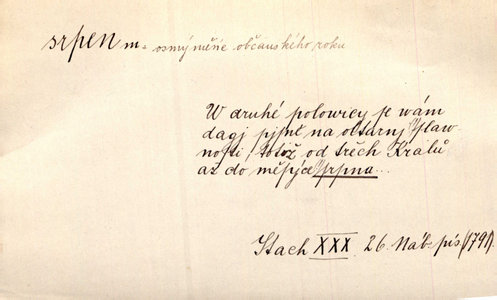 srpen m = osmý měsíc občanského roku
W druhé polowicy je wám
dagj pjmt na oltarnj Slaw-
nosti, totož od třech Králů
až do měsýce Srpna...
Stach XXX. 26. Náb. pís. (1791).